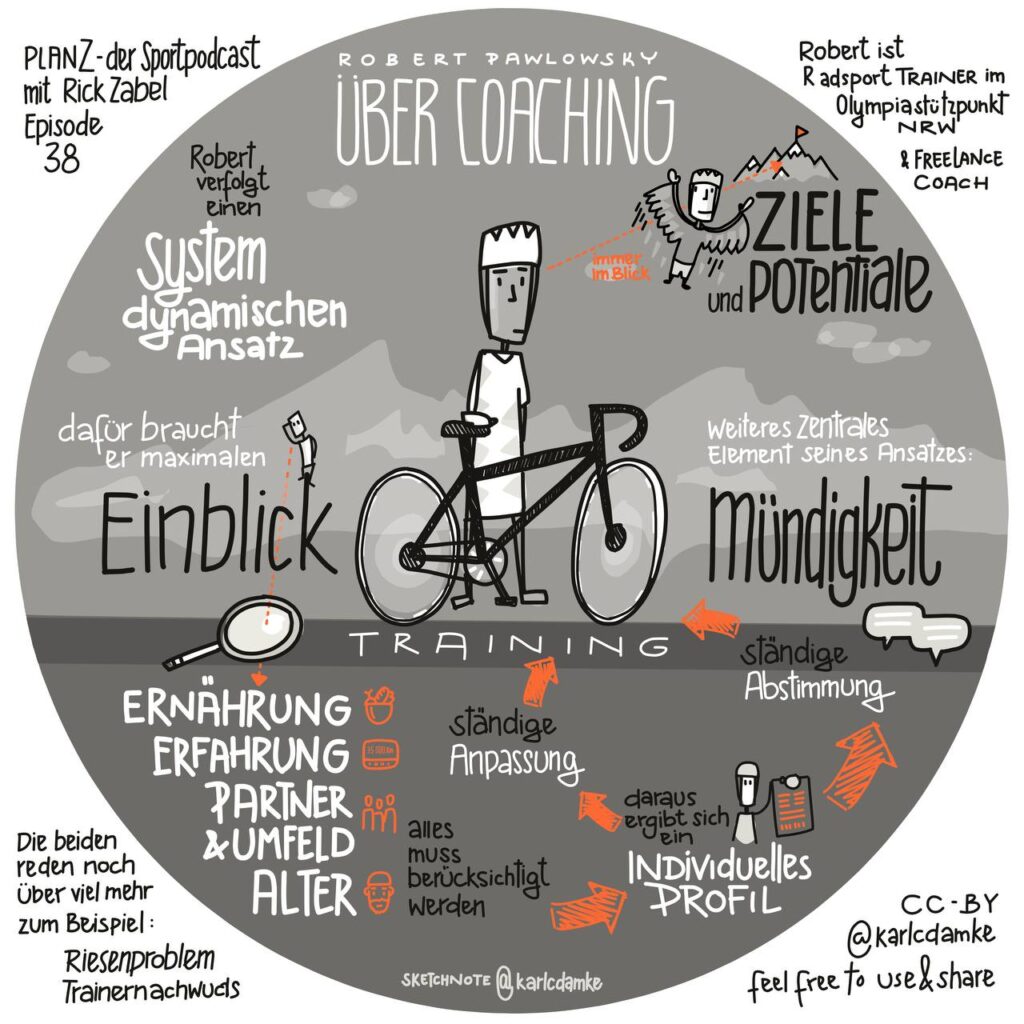 PLANZ - der Sportpodcast
mit Rick Zabel
Episode
38
ROBERT PAWLOWSKY
ÜBER COACHING
Robert ist
Radsport TRAINER im
Olympiastützpunkt
NRW
& FREELANCE
COACH
Robert
verfolgt
einen
System
dynamischen
Ansatz
immer
im Blick
ZIELE
und POTENTIALE
dafür braucht
er maximalen
Einblick
Weiteres Zentrales
Element seines Ansatzes:
Mündigkeit
TRAINING
ständige
Abstimmung
ERNÄHRUNG
ERFAHRUNG
35 000 Km
PARTNER
& UMFELD
ALTER
ständige
Anpassung
alles
muss
berücksichtigt
werden
daraus
ergibt sich
ein
INDIVIDUELLES
PROFIL
Die beiden
reden noch
über viel mehr
zum Beispiel:
Riesenproblem
Trainernachwuds
SKETCHNOTE @karlcdamke
CC-BY
@karlcdamke
feel free to use & share